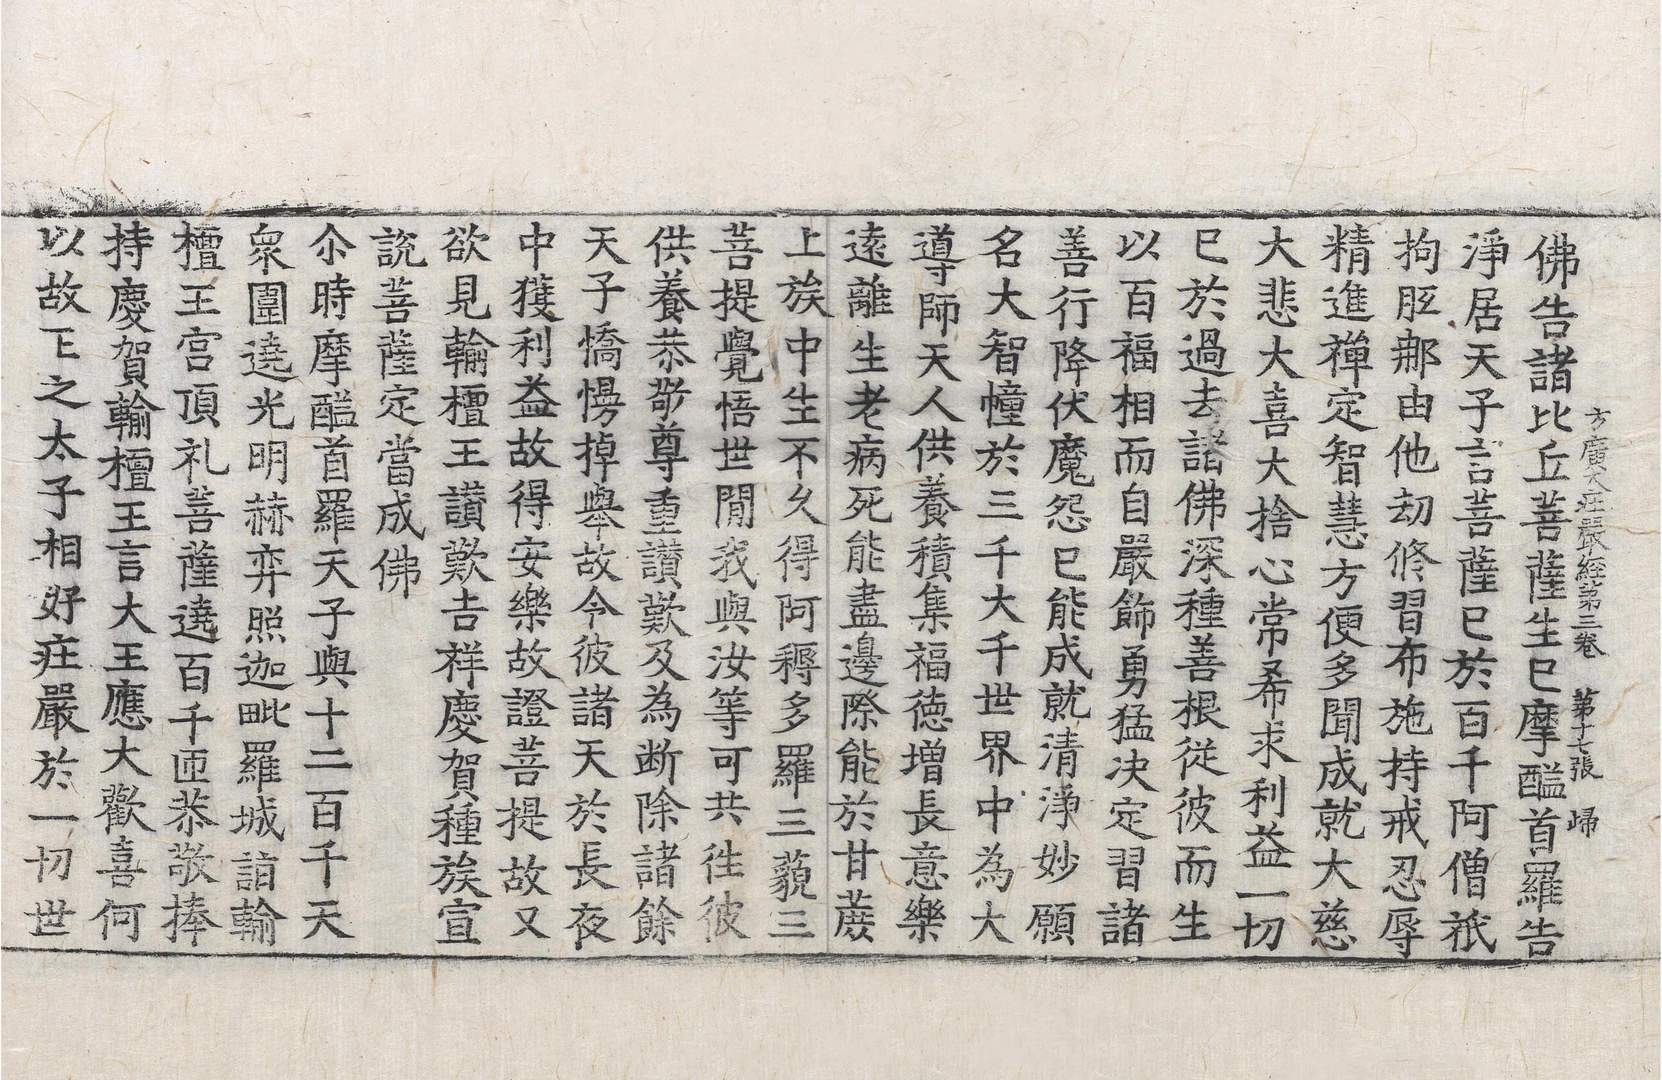 方廣大莊嚴經第三卷 第十七張 歸
佛告諸比丘菩薩生已摩醯首羅告
淨居天子言菩薩已於百千阿僧祇
拘胝那由他劫修習布施持戒忍辱
精進禪定智慧方便多聞成就大慈
大悲大喜大捨心常希求利益一切
已於過去諸佛深種善根從彼而生
以百福相而自嚴飾勇猛决定習諸
善行降伏魔怨已能成就清淨妙願
名大智幢於三千大千世界中為大
導師天人供養積集福德增長意樂
遠離生老病死能盡邊際能於甘蔗
上族中生不久得阿耨多羅三藐三
菩提覺悟世間我與汝等可共往彼
供養恭敬尊重讃歎及為断除諸餘
天子憍慢掉舉故令彼諸天於長夜
中獲利益故得安樂故證菩提故又
欲見輸檀王讃歎吉祥慶賀種族宣
說菩薩定當成佛
尒時摩醯首羅天子與十二百千天
衆圍遶光明赫弈照迦毗羅城詣輸
檀王宮頂礼菩薩遶百千匝恭敬捧
持慶賀輸檀王言大王應大歡喜何
以故王之太子相好莊嚴於一切世